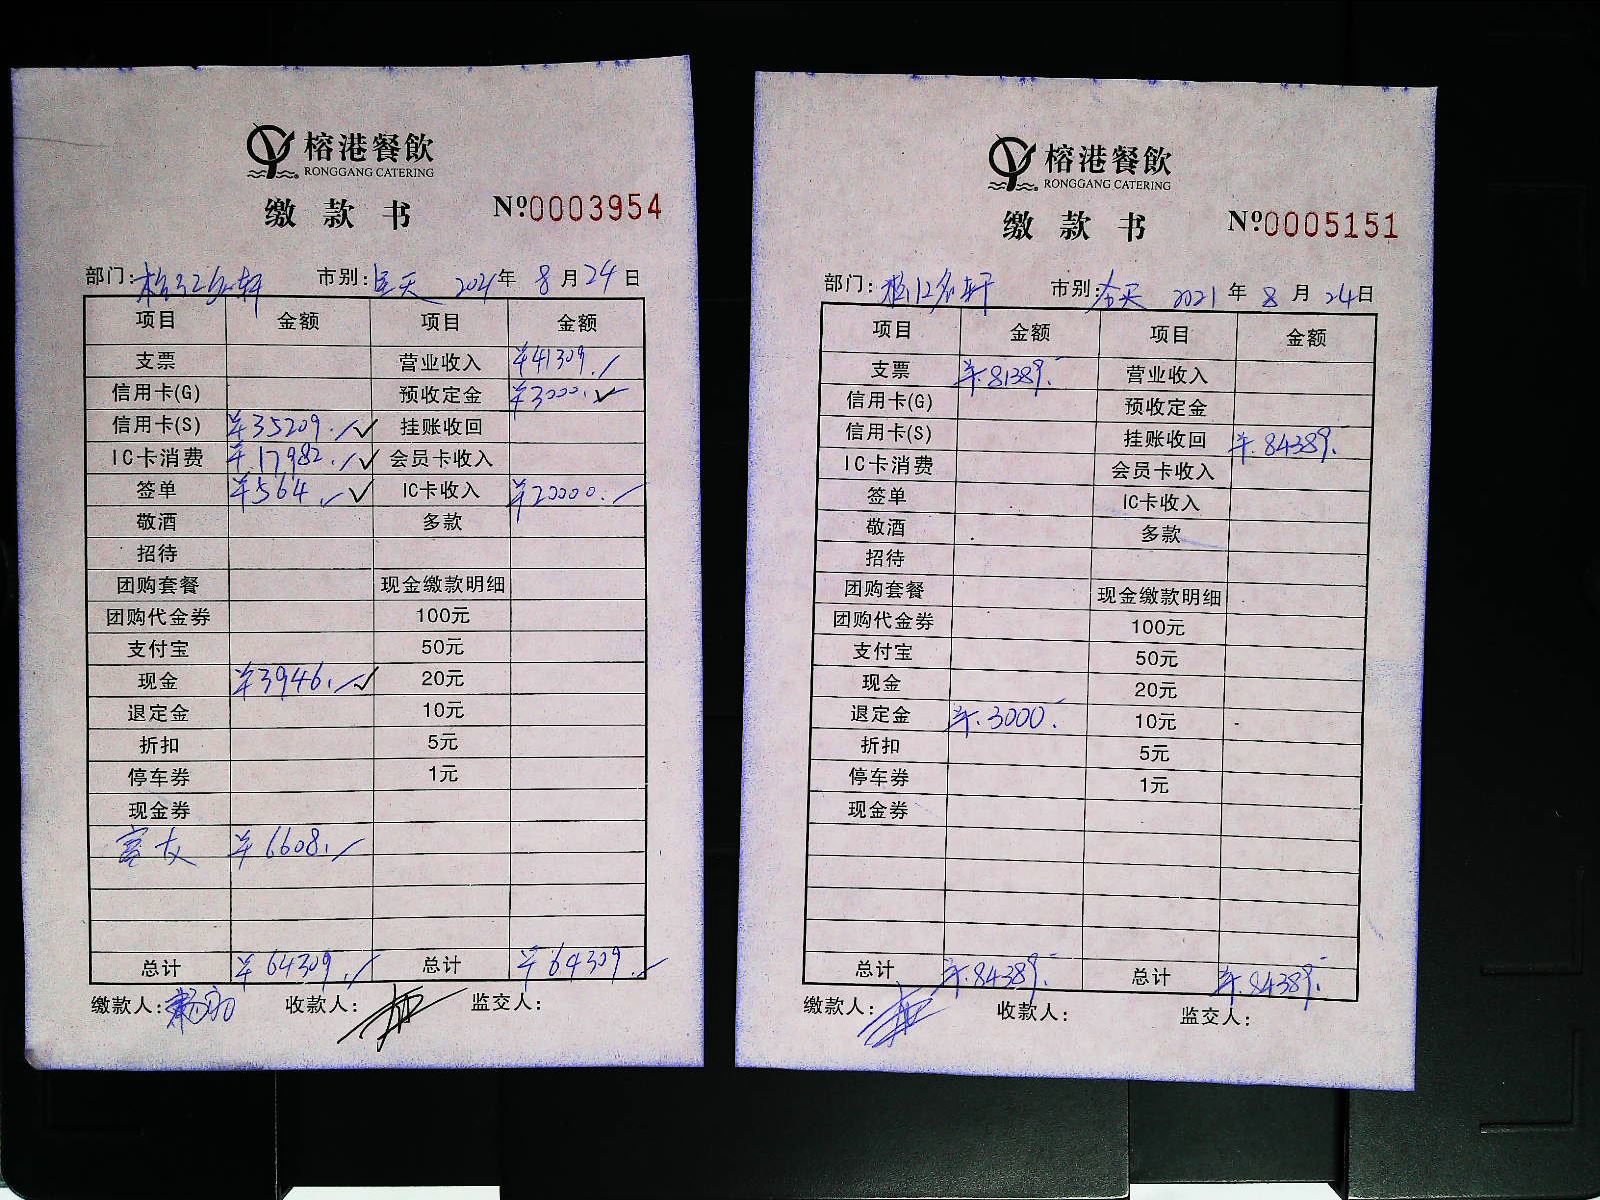 榕港餐飲
RONGGANG CATERING
缴款书 Nº0003954
部门: 市别: 全天 2021年 8月24日
项目 金额 项目 金额
支票 营业收入 ¥41309.
信用卡(G) 预收定金 ¥3000.
信用卡(S) ¥35209. 挂账收回
IC卡消费 ¥17982. 会员卡收入
签单 ¥564. IC卡收入 ¥20000.
敬酒 多款
招待
团购套餐 现金缴款明细
团购代金券 100元
支付宝 50元
现金 ¥3946. 20元
退定金 10元
折扣 5元
停车券 1元
现金券
¥6608.
总计 ¥64309. 总计 ¥64309.
缴款人: 收款人: 监交人:
榕港餐飲
RONGGANG CATERING
缴款书 Nº0005151
部门: 市别: 全天 2021年 8月24日
项目 金额 项目 金额
支票 ¥81389. 营业收入
信用卡(G) 预收定金
信用卡(S) 挂账收回 ¥84389.
IC卡消费 会员卡收入
签单 IC卡收入
敬酒 多款
招待
团购套餐 现金缴款明细
团购代金券 100元
支付宝 50元
现金 20元
退定金 ¥3000. 10元
折扣 5元
停车券 1元
现金券
总计 ¥84389. 总计 ¥84389.
缴款人: 收款人: 监交人: